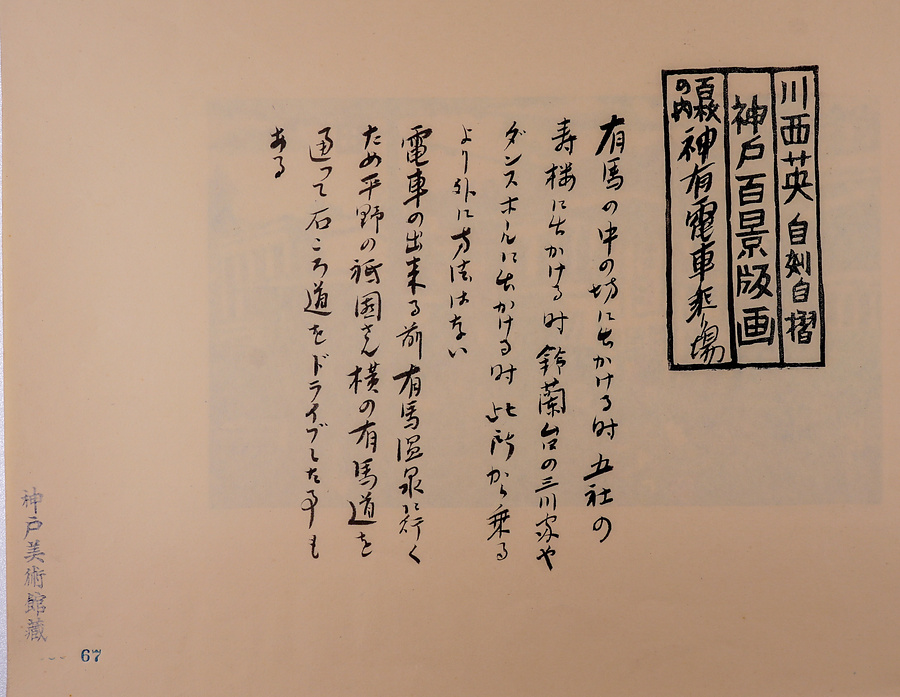 川西英 自刻自摺
神戸百景版画
百枚の内 神有電車乗場
有馬の中の坊に出かける時 五社の
寿楼に出かける時 鈴蘭台の三川家や
ダンスホールに出かける時 此所から乗る
より外に方法はない
電車の出来る前 有馬温泉に行く
ため平野の祇園さん横の有馬道を
通って石ころ道をドライブした事も
ある
神戸美術館蔵
67